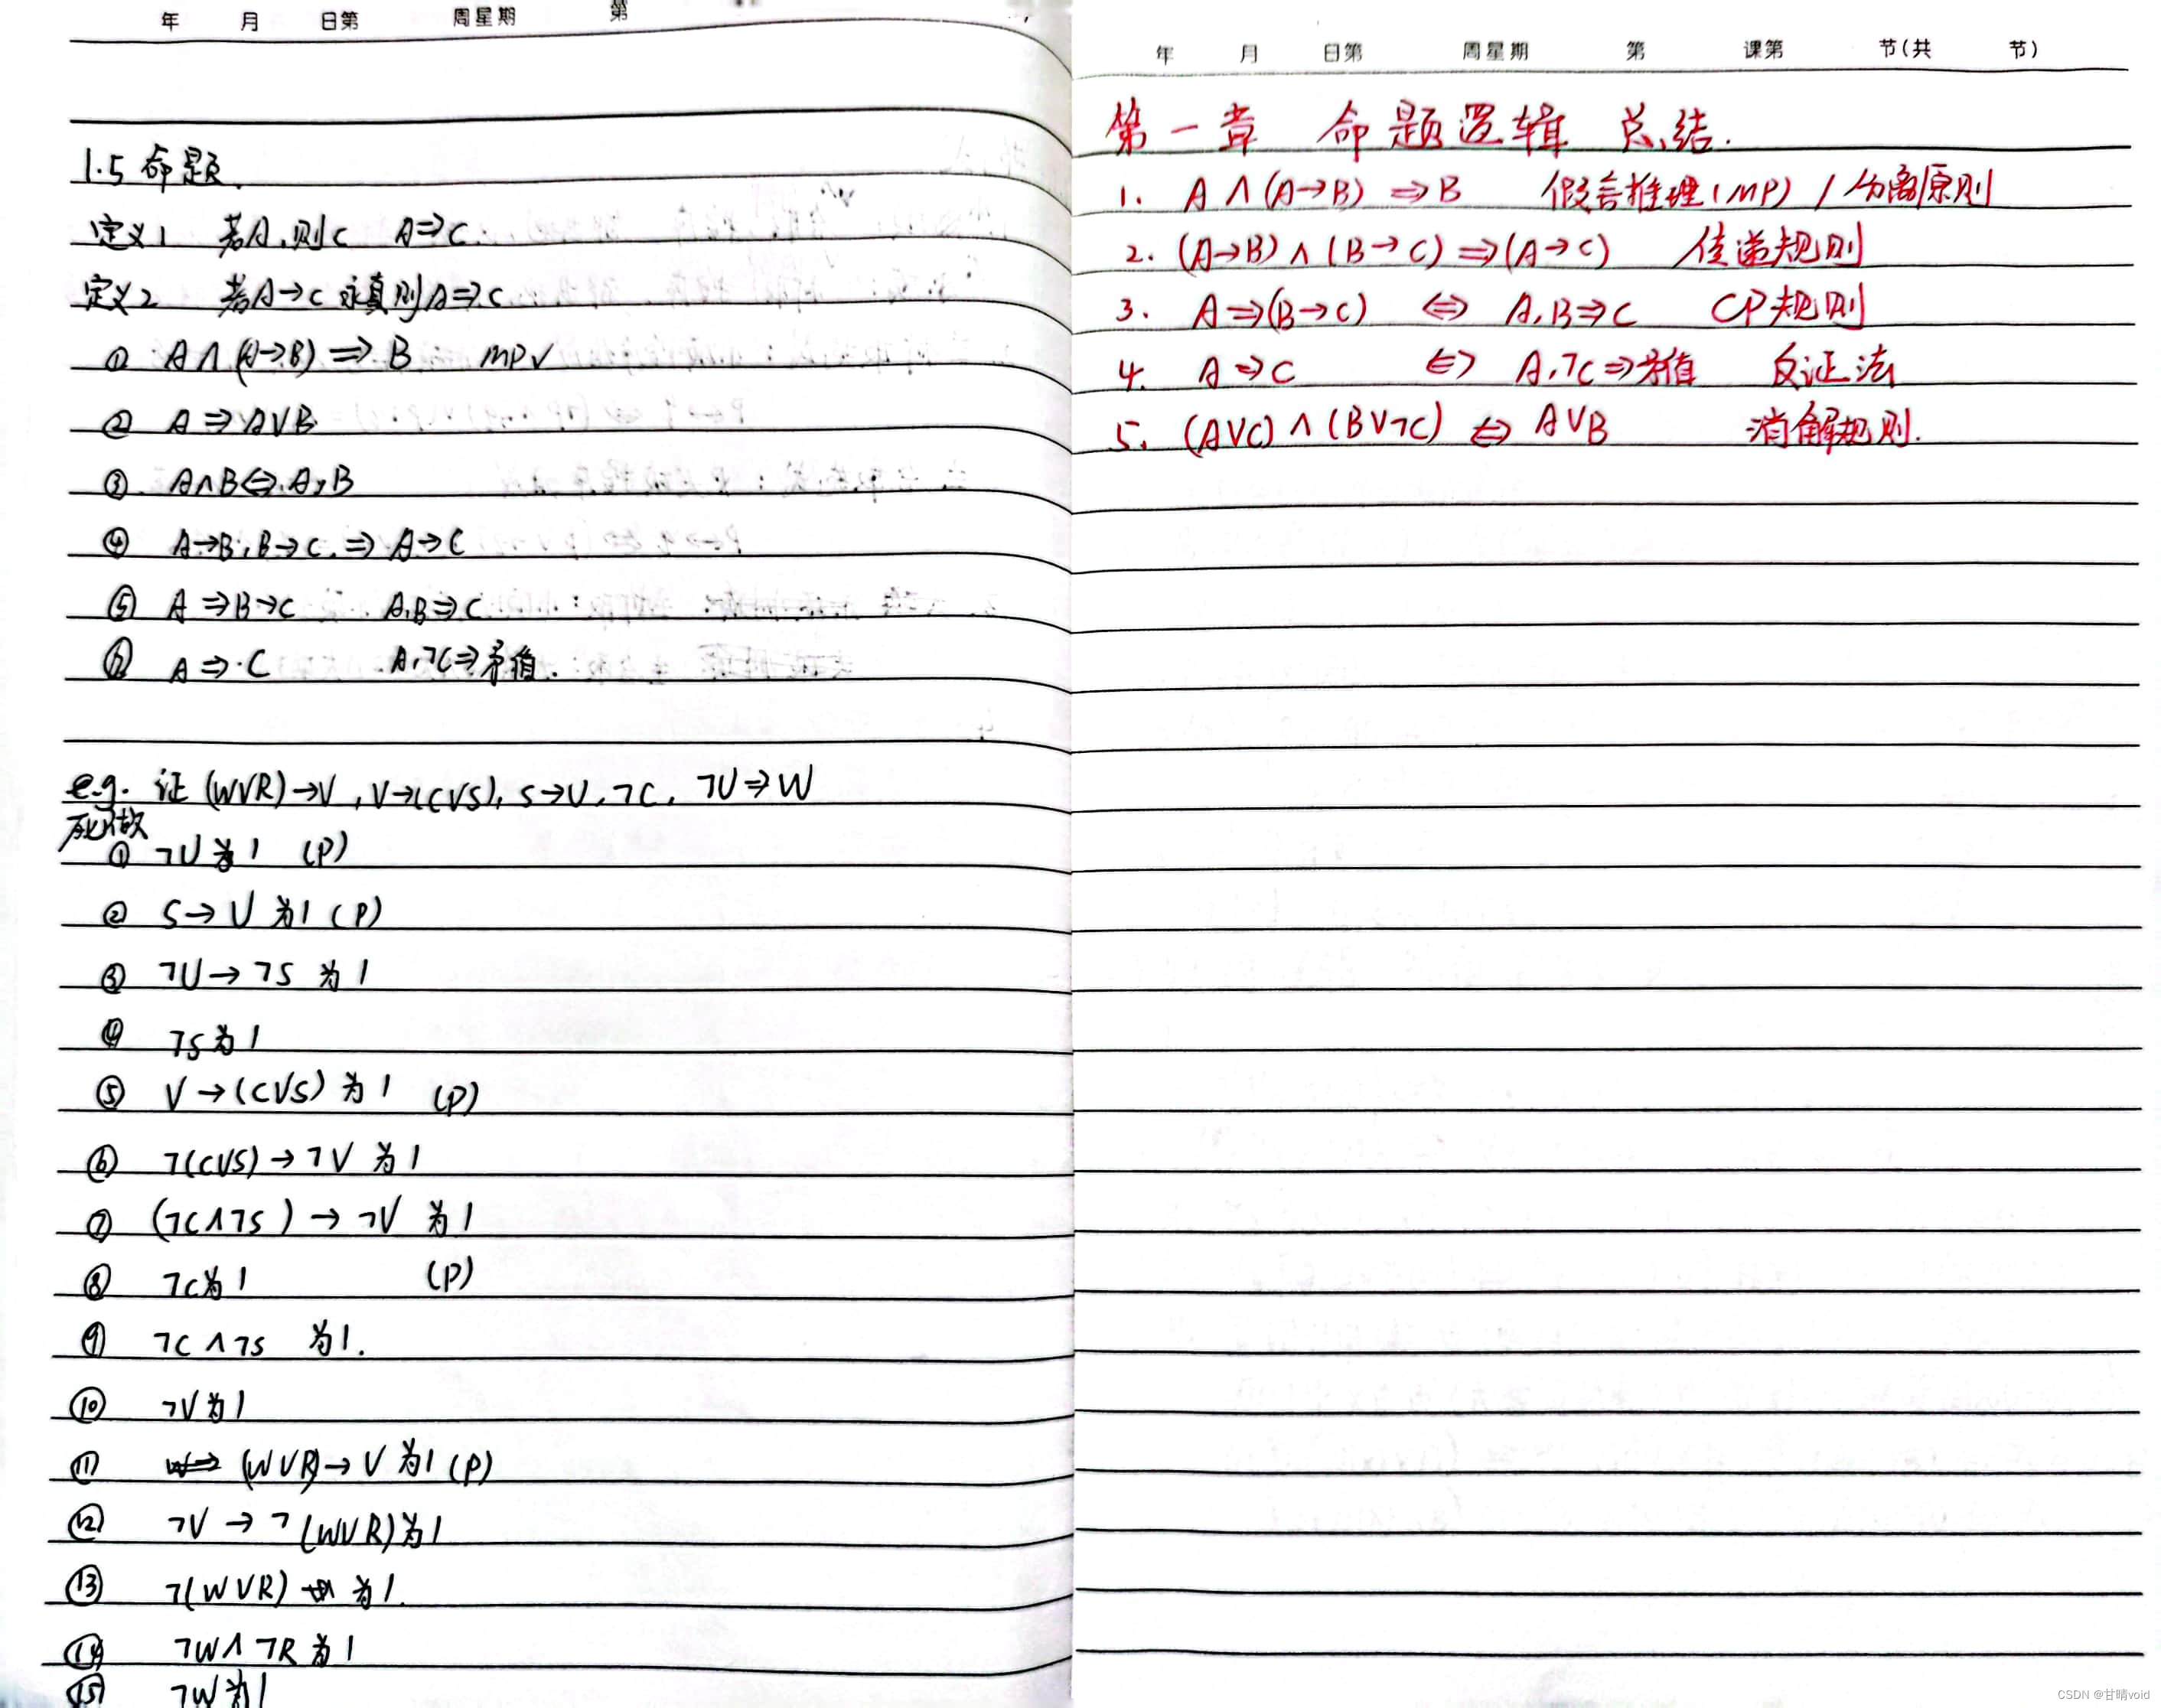 年 月 日第 周星期 第
1.5 命题.
定义1 若A,则C A⇒C.
定义2 若A→C 永真则A⇒C
① A∧(A→B)⇒B MP√
② A⇒A∨B
③ A∧B⇔A,B
④ A→B,B→C,⇒A→C
⑤ A⇒B→C A,B⇒C
⑥ A⇒C A,¬C⇒矛盾.
e.g. 证 (W∨R)→V,V→(C∨S),S→U,¬C,¬U⇒W
死做
① ¬U为1 (P)
② S→U为1(P)
③ ¬U→¬S为1
④ ¬S为1
⑤ V→(C∨S)为1 (P)
⑥ ¬(C∨S)→¬V为1
⑦ (¬C∧¬S)→¬V为1
⑧ ¬C为1 (P)
⑨ ¬C∧¬S 为1.
⑩ ¬V为1
⑪ (W∨R)→V为1(P)
⑫ ¬V→¬(W∨R)为1
⑬ ¬(W∨R) 为1.
⑭ ¬W∧¬R为1
⑮ ¬W为1
年 月 日第 周星期 第 课第 节(共 节)
第一章 命题逻辑 总结.
1. A∧(A→B)⇒B 假言推理(MP)/分离原则
2. (A→B)∧(B→C)⇒(A→C) 传递规则
3. A⇒(B→C) ⇔ A,B⇒C CP规则
4. A⇒C ⇔ A,¬C⇒矛盾 反证法
5. (A∨C)∧(B∨¬C)⇔A∨B 消解规则.
CSDN @甘晴void